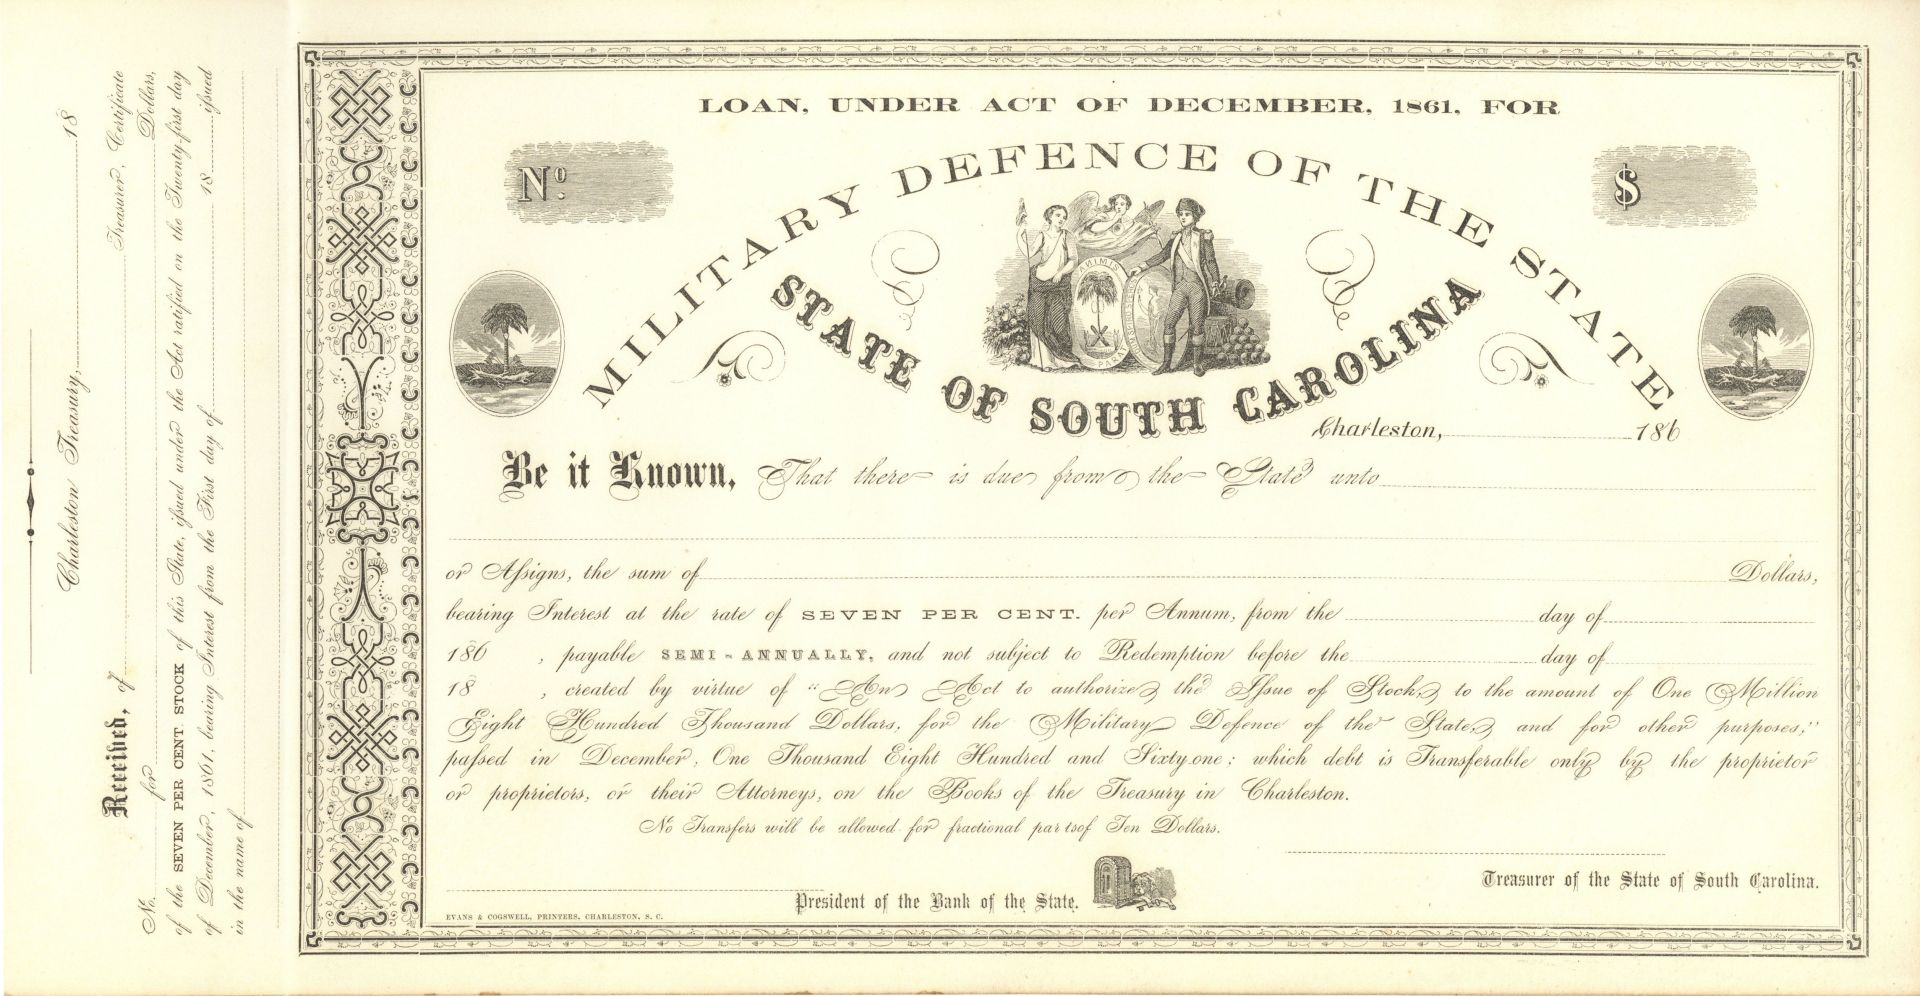 Charleston Treasury, 18
Received, of Treasurer, Certificate
No. for Dollars,
of the SEVEN PER CENT. STOCK of this State, ifsued under the Act ratified on the Twenty-first day
of December, 1861, bearing Interest from the First day of 18 ifsued
in the name of
LOAN, UNDER ACT OF DECEMBER, 1861, FOR
No.
$
MILITARY DEFENCE OF THE STATE
ANIMIS
STATE OF SOUTH CAROLINA
Charleston, 186
Be it Known, That there is due from the State unto
or Afsigns, the sum of Dollars,
bearing Interest at the rate of SEVEN PER CENT. per Annum, from the day of
186 , payable SEMI-ANNUALLY, and not subject to Redemption before the day of
18 , created by virtue of "An Act to authorize the Ifsue of Stock, to the amount of One Million
Eight Hundred Thousand Dollars, for the Military Defence of the State, and for other purposes,"
pafsed in December, One Thousand Eight Hundred and Sixty.one; which debt is Transferable only by the proprietor
or proprietors, or their Attorneys, on the Books of the Treasury in Charleston.
No Transfers will be allowed for fractional par tsof Ten Dollars.
President of the Bank of the State.
Treasurer of the State of South Carolina.
EVANS & COGSWELL, PRINTERS, CHARLESTON, S. C.